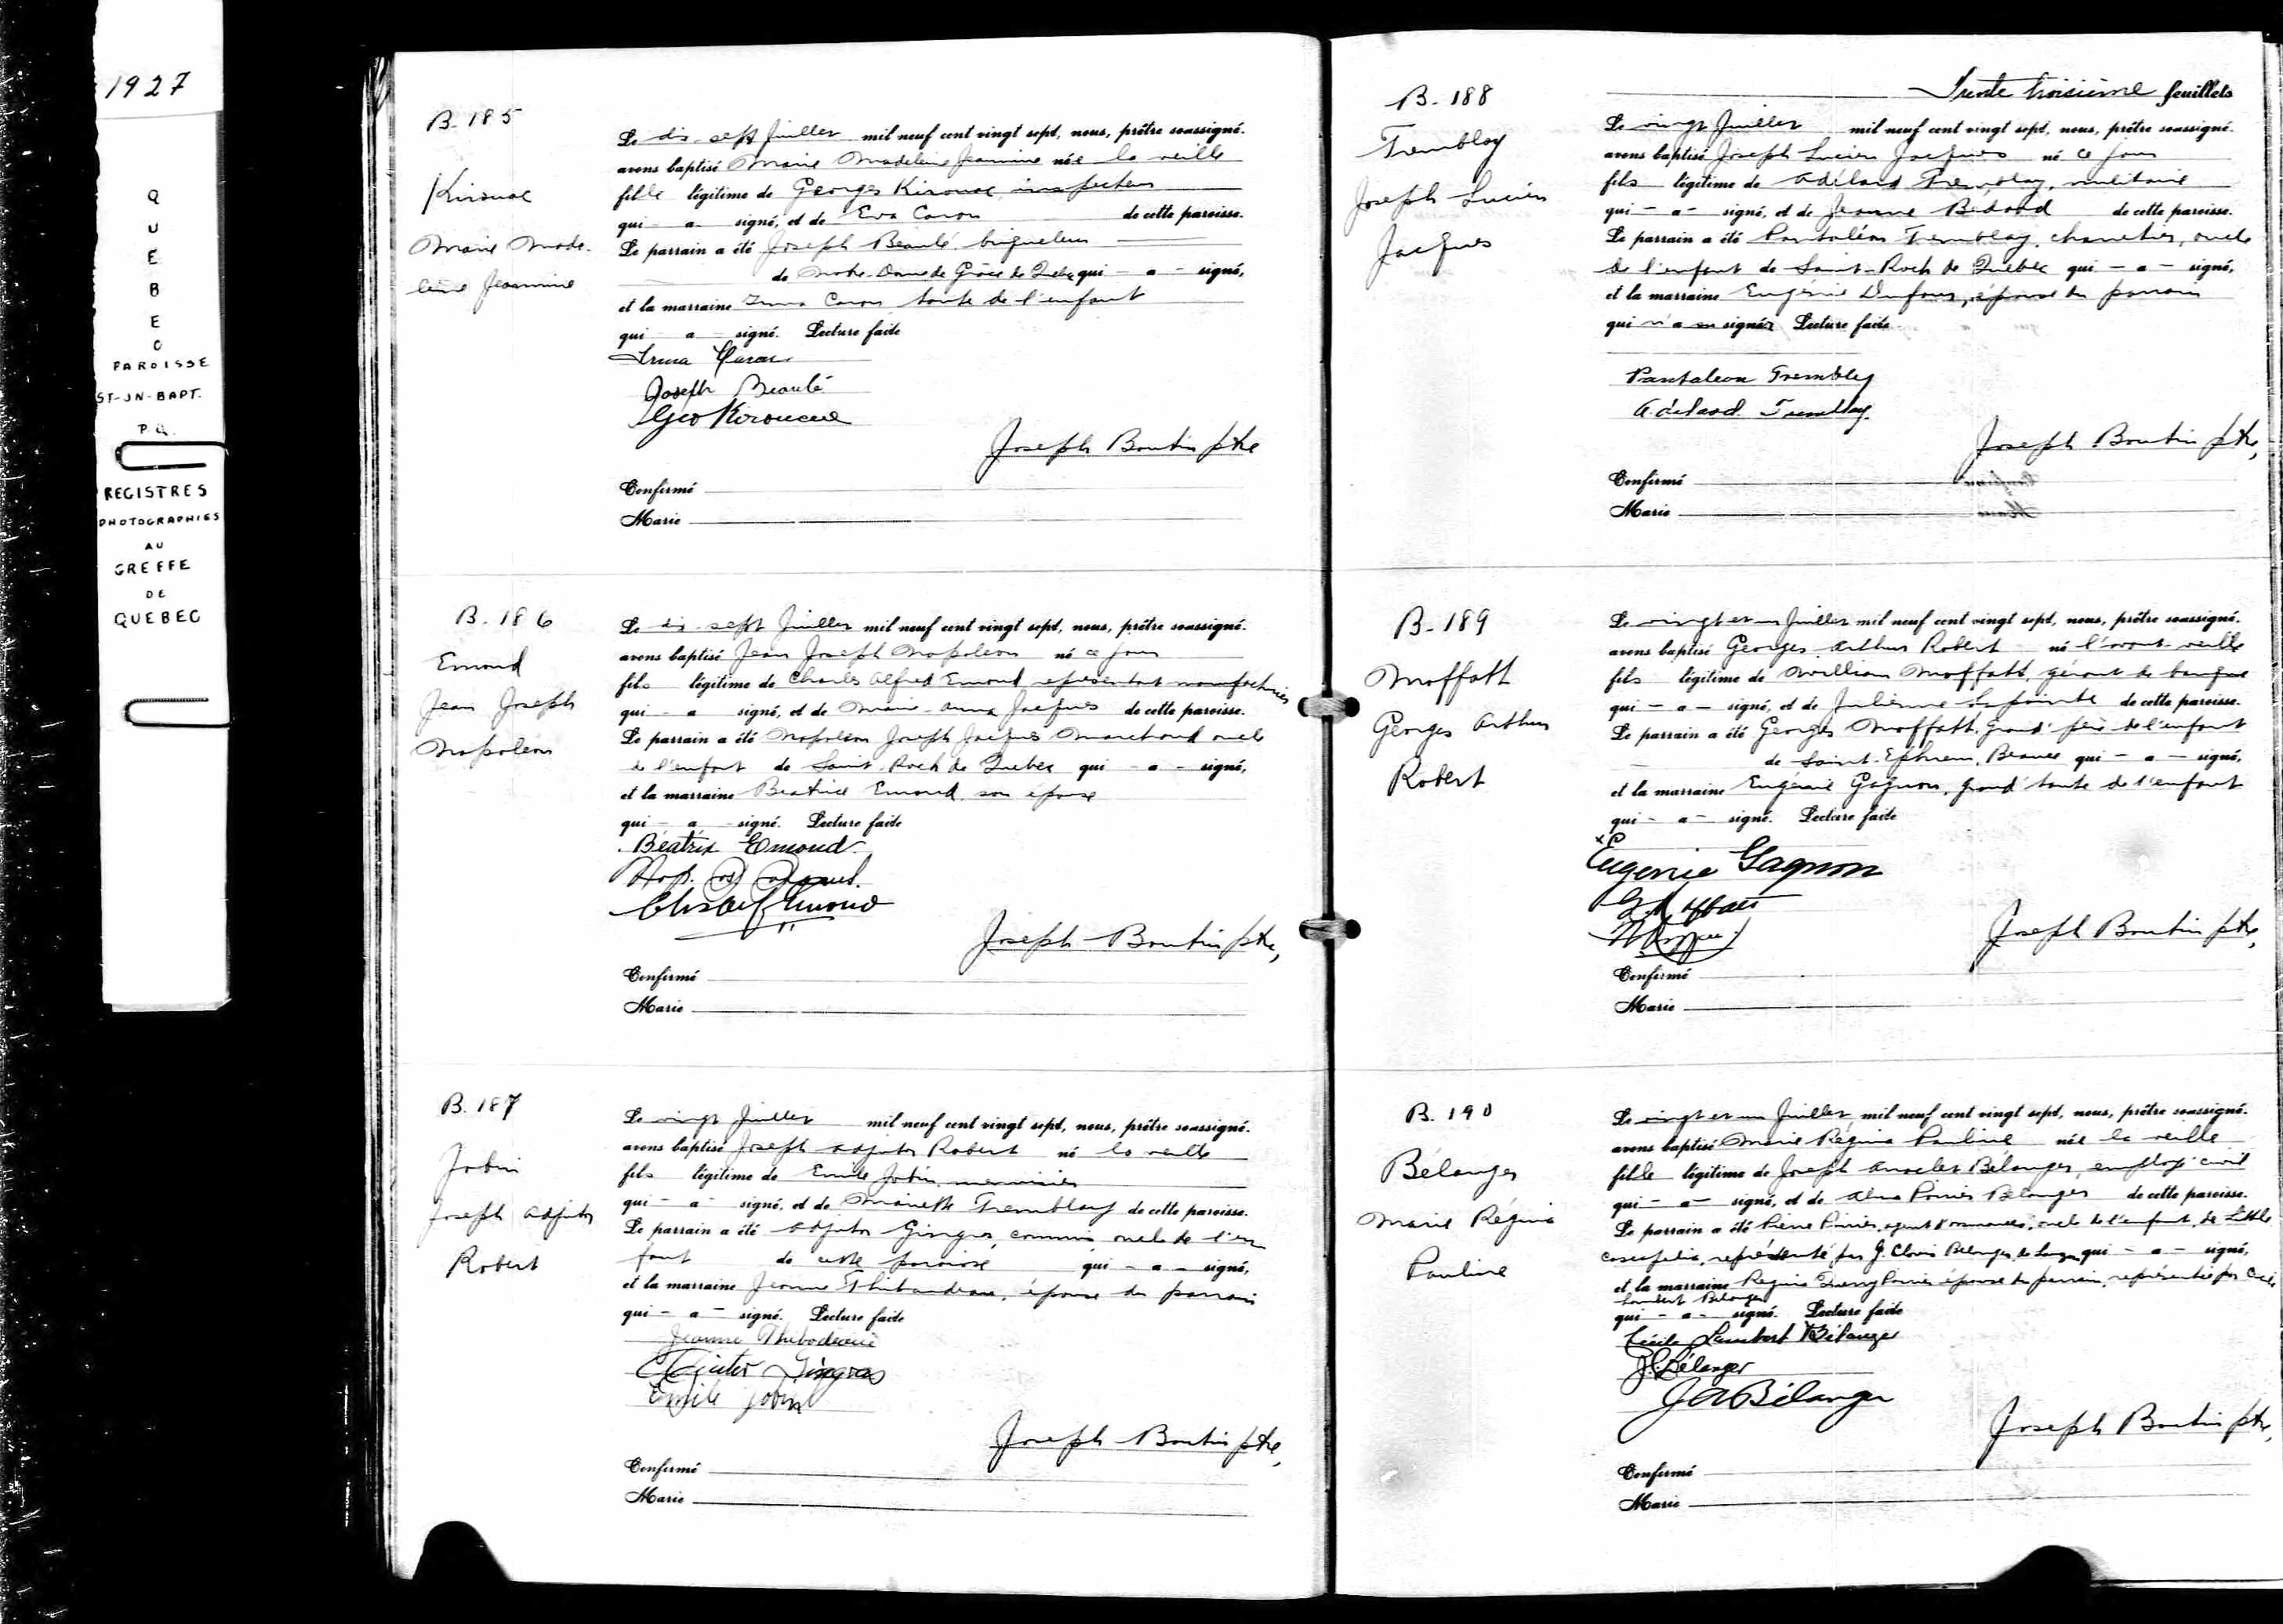 1927
QUEBEC
PAROISSE
ST-JN-BAPT.
P.Q.
REGISTRES
PHOTOGRAPHIES
AU
GREFFE
DE
QUEBEC
B-185
Kirouac
Marie Made-
leine Jeannine
Le dix-sept Juillet mil neuf cent vingt sept, nous, prêtre soussigné.
avons baptisé Marie Madeleine Jeannine née la veille
fille légitime de Georges Kirouac inspecteur
qui - a - signé, et de Eva Caron de cette paroisse.
Le parrain a été Joseph Beaulé briqueleur
de Notre-Dame de Grâce de Québec qui - a - signé,
et la marraine Irma Caron tante de l'enfant
qui - a - signé. Lecture faite
Irma Caron
Joseph Beaulé
Geo Kirouac
Joseph Boutin ptre
Confirmé
Marié
B-186
Emond
Jean Joseph
Napoléon
Le dix-sept Juillet mil neuf cent vingt sept, nous, prêtre soussigné.
avons baptisé Jean Joseph Napoléon né ce jour
fils légitime de Charles Alfred Emond représentant manufacturier
qui - a signé, et de Marie-Anna Jacques de cette paroisse.
Le parrain a été Napoléon Joseph Jacques Marchand oncle
de l'enfant de Saint-Roch de Québec qui - a - signé,
et la marraine Béatrice Emond, son épouse
qui - a - signé. Lecture faite
Béatrix Emond
Nap. Jos Jacques
Chs Alf Emond
Joseph Boutin ptre,
Confirmé
Marié
B.187
Jobin
Joseph Adjutor
Robert
Le vingt Juillet mil neuf cent vingt sept, nous, prêtre soussigné.
avons baptisé Joseph Adjutor Robert né la veille
fils légitime de Emile Jobin, menuisier
qui - a - signé, et de Mariette Tremblay de cette paroisse.
Le parrain a été Adjutor Gingras, commis oncle de l'en
fant de cette paroisse qui - a - signé,
et la marraine Jeanne Thibaudeau, épouse du parrain
qui - a - signé. Lecture faite
Jeanne Thibodeau
Adjutor Gingras
Emile Jobin
Joseph Boutin ptre,
Confirmé
Marié
Trente troisième feuillets
B-188
Tremblay
Joseph Lucien
Jacques
Le vingt Juillet mil neuf cent vingt sept, nous, prêtre soussigné.
avons baptisé Joseph Lucien Jacques né ce jour
fils légitime de Adélard Tremblay, militaire
qui - a - signé, et de Jeanne Bédard de cette paroisse.
Le parrain a été Pantaléon Tremblay, charretier, oncle
de l'enfant de Saint-Roch de Québec qui - a - signé,
et la marraine Eugénie Dufour, épouse du parrain
qui n'a su signer Lecture faite
Pantaleon Tremblay
Adélard Tremblay
Joseph Boutin ptre,
Confirmé
Marié
B-189
Moffatt
Georges Arthur
Robert
Le vingt et un Juillet mil neuf cent vingt sept, nous, prêtre soussigné.
avons baptisé Georges Arthur Robert né l'avant-veille
fils légitime de William Moffatt, gérant de banque
qui - a - signé, et de Julienne Lapointe de cette paroisse.
Le parrain a été Georges Moffatt, grand'père de l'enfant
de Saint-Ephrem, Beauce qui - a - signé,
et la marraine Eugénie Gagnon, grand'tante de l'enfant
qui - a - signé. Lecture faite
Eugenie Gagnon
Joseph Boutin ptre,
Confirmé
Marié
B.190
Bélanger
Marie Régina
Pauline
Le vingt et un Juillet mil neuf cent vingt sept, nous, prêtre soussigné.
avons baptisé Marie Régina Pauline née la veille
fille légitime de Joseph Anaclet Bélanger, employé civil
qui - a - signé, et de Alma Poirier Bélanger de cette paroisse.
Le parrain a été Pierre Poirier, agent d'assurances, oncle de l'enfant, de Little
Cascapedia, représenté par J. Clovis Bélanger, de qui - a - signé,
et la marraine Régina Poirier épouse du parrain, représentée par Cécile
Lambert Bélanger
qui - a - signé. Lecture faite
Cécile Lambert Bélanger
J.C. Bélanger
J A Bélanger
Joseph Boutin ptre,
Confirmé
Marié